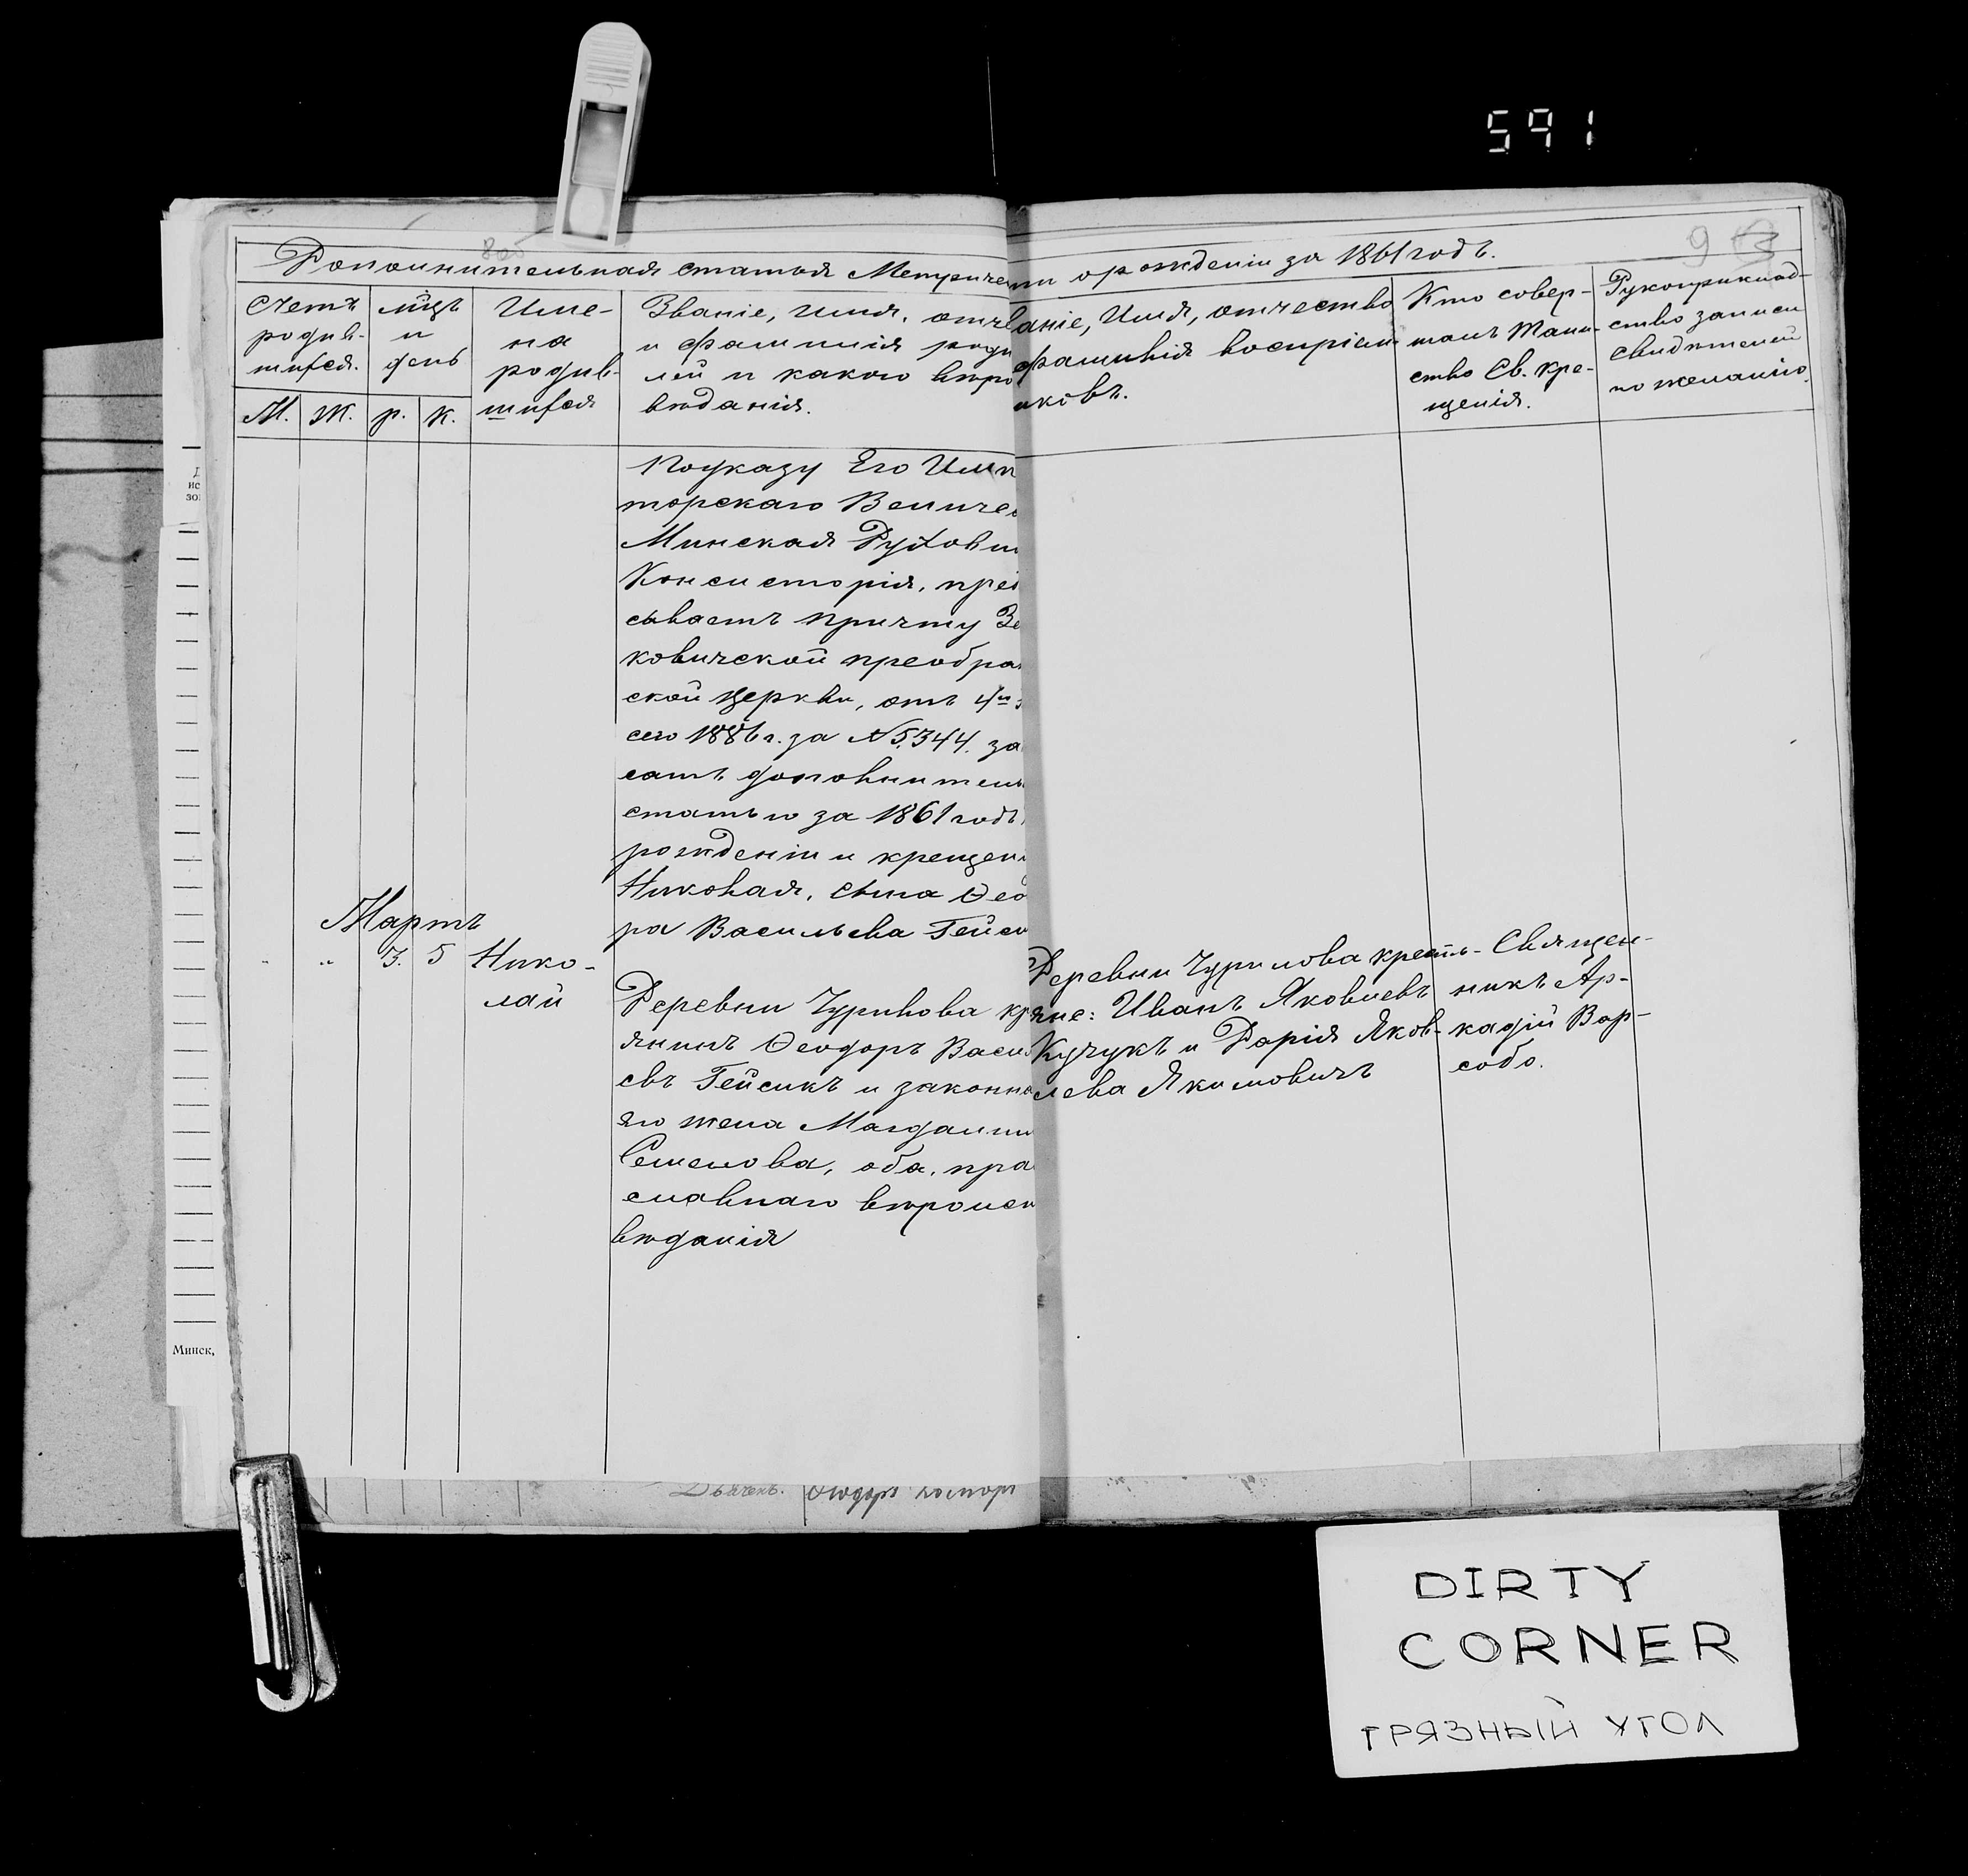 591
9
Дополнительная статья Метриче
ги о рожденіи за 1861 годъ.
Счетъ родив-шихся.
М. Ж.
мѣсъ и день
р. к.
Име-на родив-шихся
Званіе, имя, отче
и фамилія роди
лей и какого вѣро
вѣданія.
аніе, Имя, отчество
фамилія воспріем
иковъ.
Кто совер-
шалъ Таин-
ство Св. Кре-
щенія.
Рукоприклад-
ство записи
свидѣтелей
по желанію.
По указу Его Имп
торскаго Величес
Минская Духовн
Консисторія, пред
сываетъ причту
ковичской преобра
ской церкви, отъ 4го
сего 1886 г. за №5344. за
сать дополнитель
статью за 1861 годъ
рожденіи и крещен
Николая, сына Ѳео
ра Васильева Гейси
Мартъ
" " 3. 5 Нико-
лай
Деревни Чурилова кр
янинъ Ѳеодоръ Васи
евъ Гейсикъ и законна
его жена Магдалин
Семенова, оба, пра
славнаго вѣроисп
вѣданія
Деревни Чурилова кресть-
яне: Иванъ Яковлевъ
Кучукъ и Дарія Яков-
лева Якимовичъ
Священ-
никъ Ар-
кадій Вар-
собо.
Дьячекъ. Ѳеодоръ
Минск,
DIRTY
CORNER
ГРЯЗНЫЙ УГОЛ